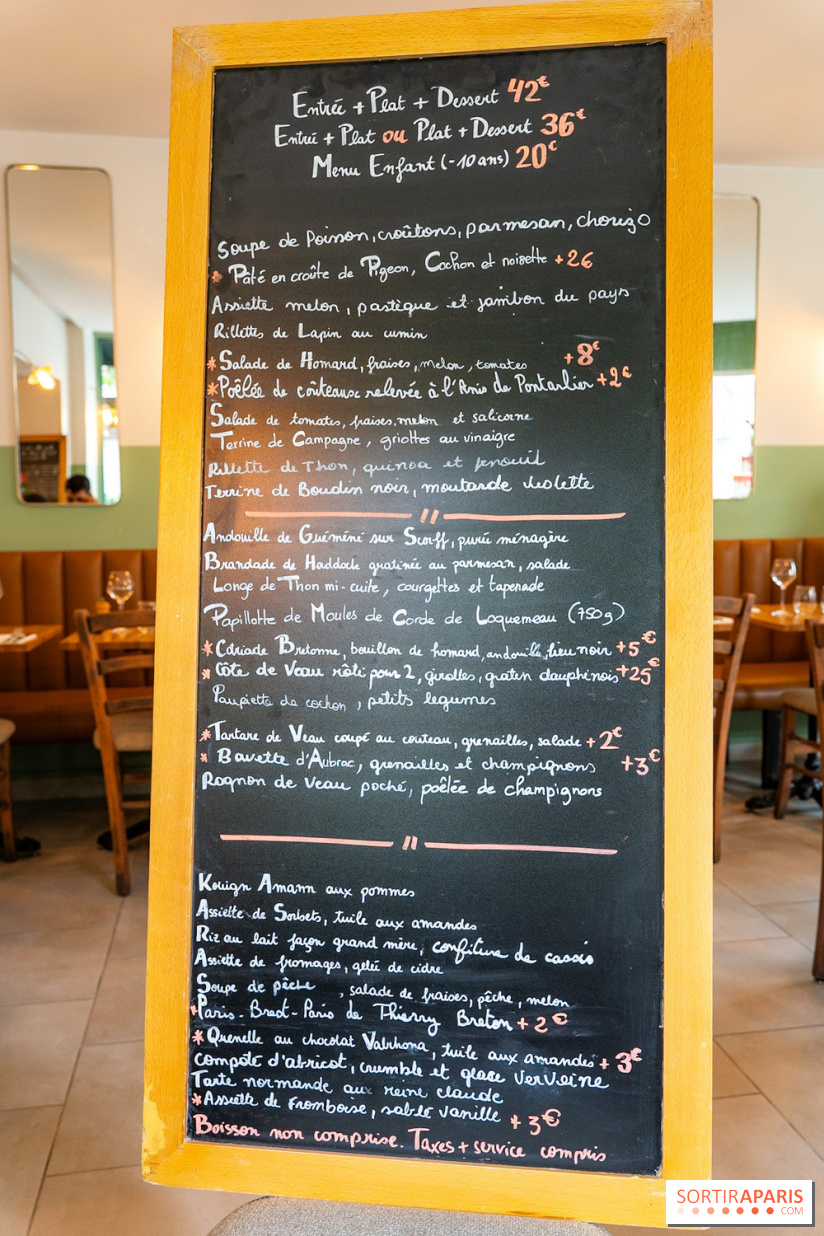 Entrée + Plat + Dessert 42€
Entrée + Plat ou Plat + Dessert 36€
Menu Enfant (-10 ans) 20€
Soupe de Poisson, croûtons, parmesan, chorizo
* Pâté en croûte de Pigeon, Cochon et noisette +2€
Assiette melon, pastèque et jambon du pays
Rillettes de Lapin au cumin
* Salade de Homard, fraises, melon, tomates +8€
* Poêlée de couteaux relevée à l'Anis de Pontarlier +2€
Salade de tomates, fraises, melon et salicorne
Terrine de Campagne, griottes au vinaigre
Rillette de Thon, quinoa et fenouil
Terrine de Boudin noir, moutarde violette
"
Andouille de Guéméné sur Scorff, purée ménagère
Brandade de Haddock gratinée au parmesan, salade
Longe de Thon mi-cuite, courgettes et tapenade
Papillotte de Moules de Corde de Loquemeau (750g)
* Cotriade Bretonne, bouillon de homard, andouille, lieu noir +5€
* Côte de Veau rôti pour 2, girolles, gratin dauphinois +25€
Paupiette de cochon, petits legumes
* Tartare de Veau coupé au couteau, grenailles, salade +2€
* Bavette d'Aubrac, grenailles et champignons +3€
Rognon de Veau poché, poêlée de champignons
"
Kouign Amann aux pommes
Assiette de Sorbets, tuile aux amandes
Riz au lait façon grand mère, confiture de cassis
Assiette de fromages, gelée de cidre
Soupe de pêche, salade de fraises, pêche, melon
* Paris-Brest-Paris de Thierry Breton + 2€
* Quenelle au chocolat Valrhona, tuile aux amandes + 3€
compote d'abricot, crumble et glace verveine
Tarte normande aux reine claude
* Assiette de framboise, sablé vanille + 3€
Boisson non comprise. Taxes + service compris
SORTIRAPARIS
.COM